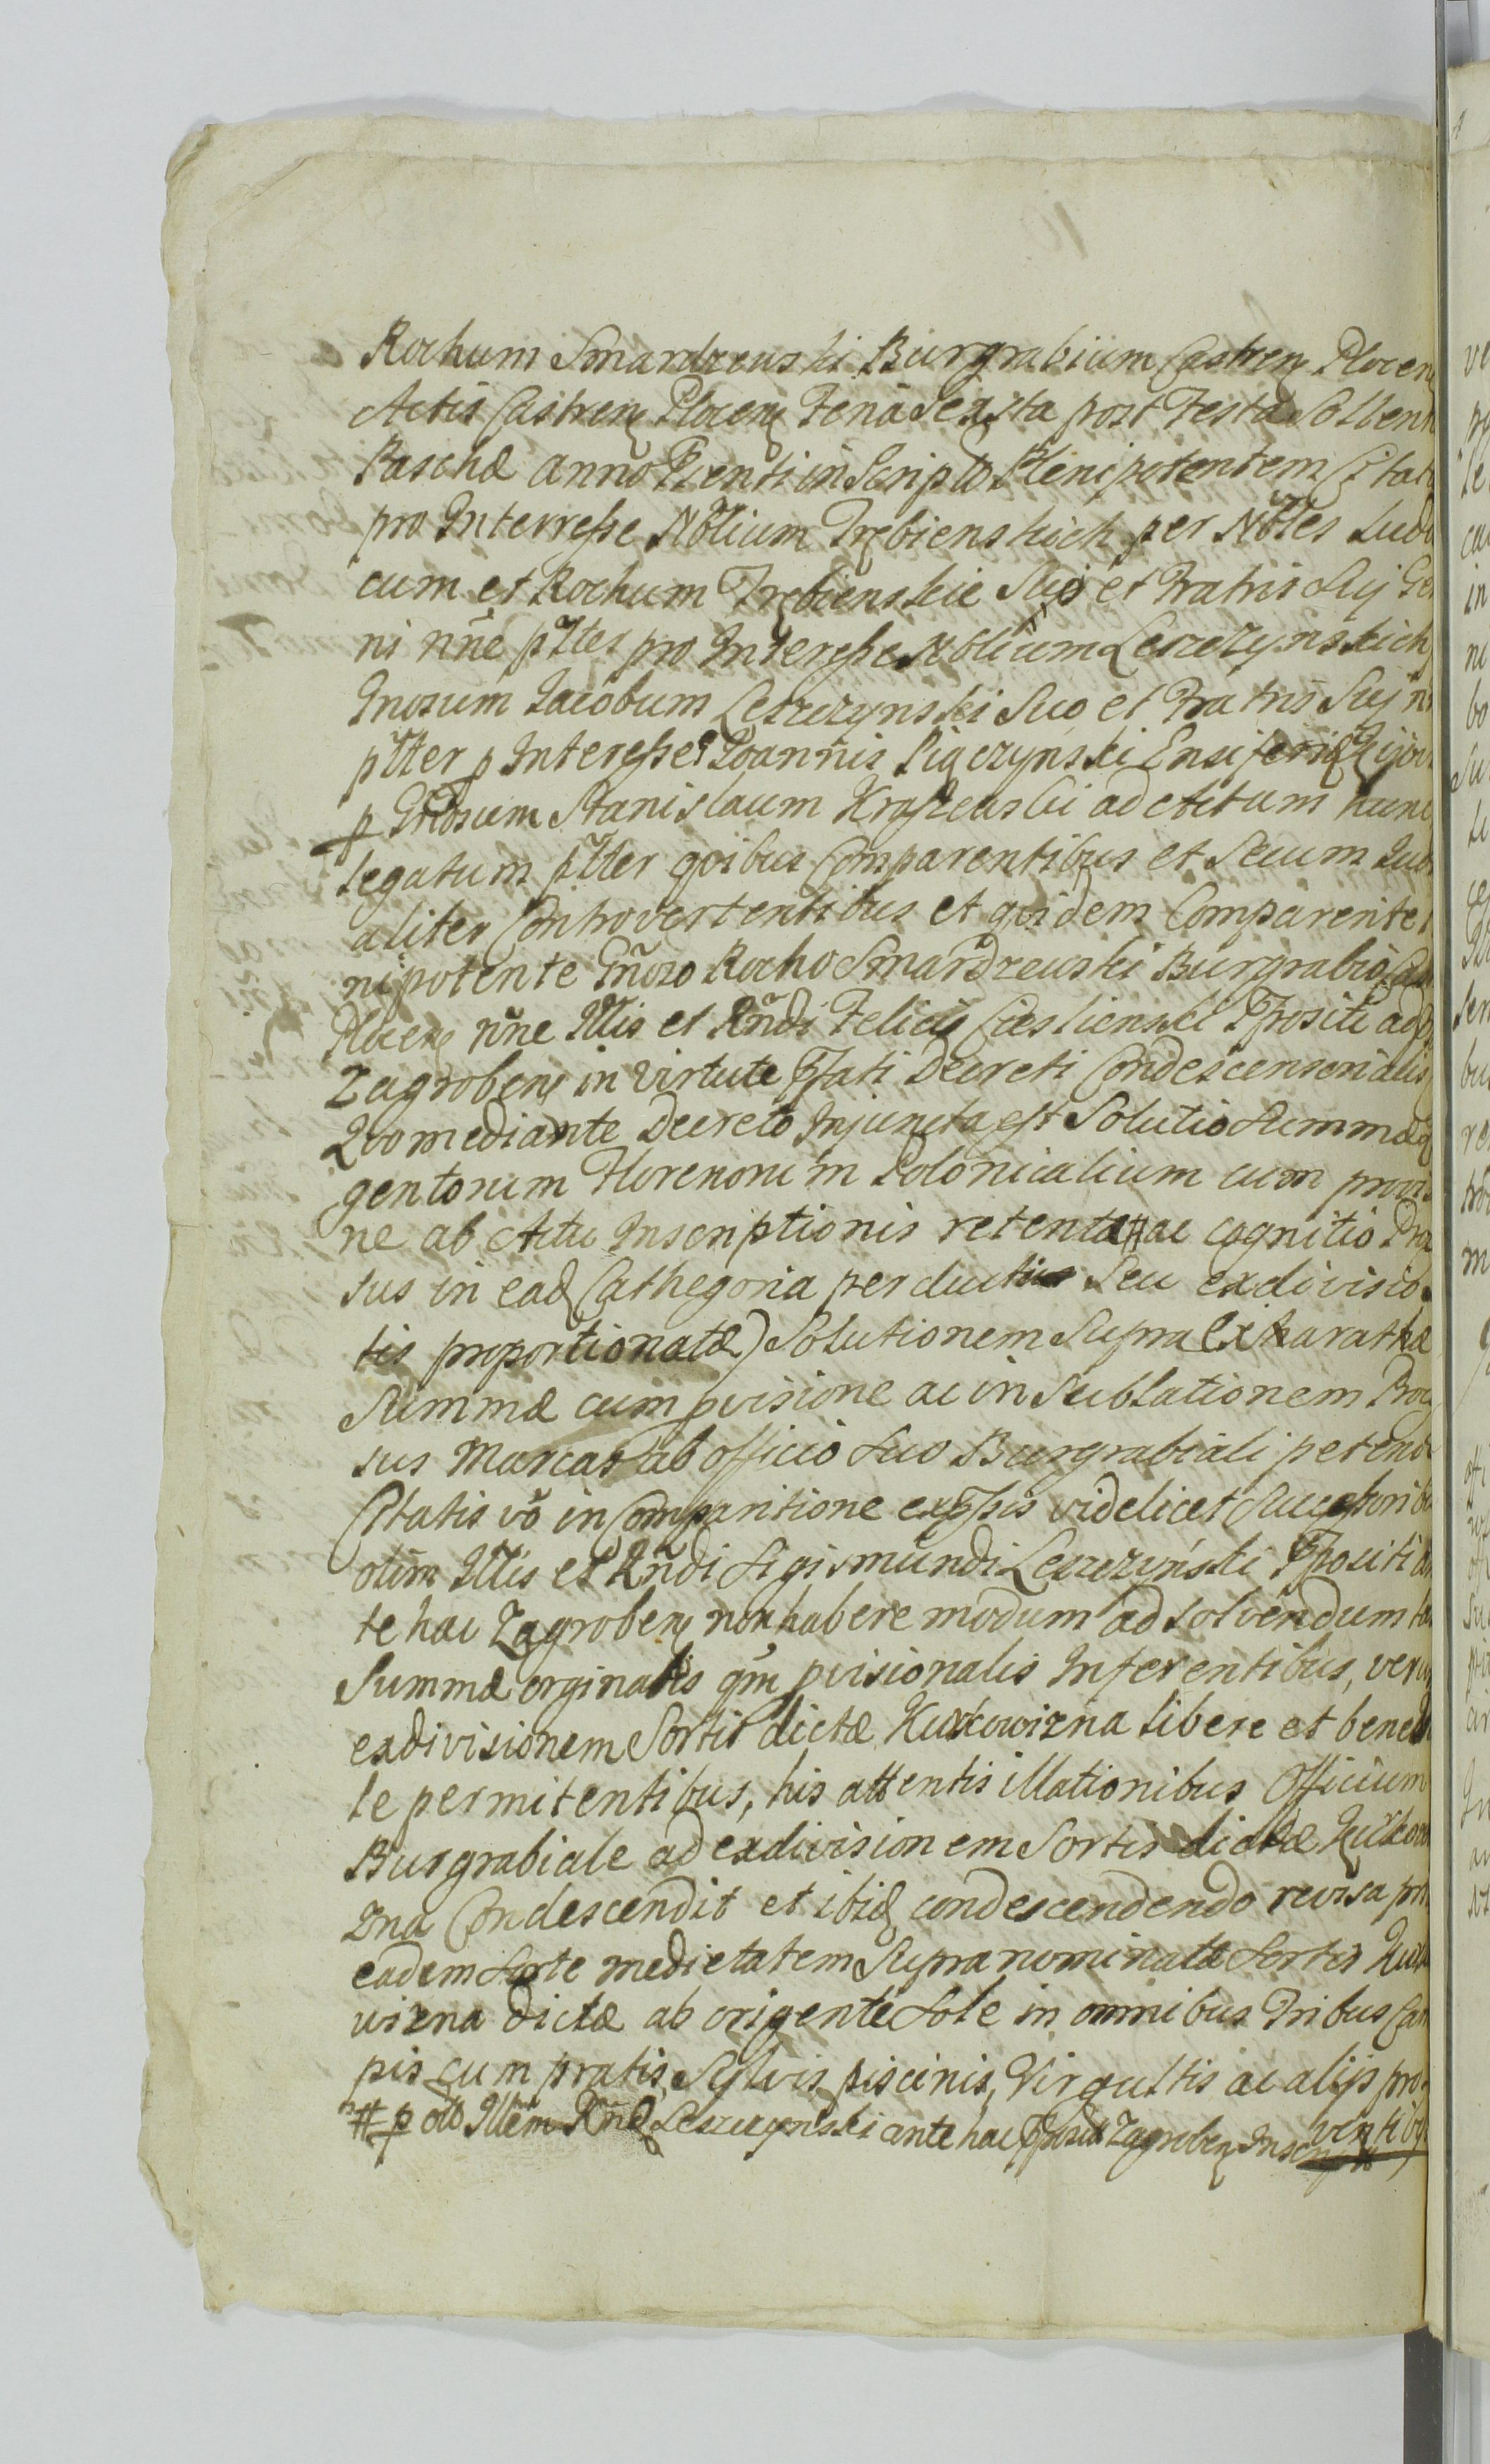 Rochum Smardzewski Burgrabium Castren Plocen
Actis Castren Plocen Feria Sexta post Festa Sollenn
Paschæ anno Prenti in Scripto Plenipotentem Citat
pro Interresse Nōlium Trębienskich per Nōles Ludo
cum et Rochum Trębienskie Suo et Fratris Sui Ger
ni nn̄e pr̄tter pro Interesse Nōlium Leszczynskich
Gnosum Jacobum Leszczynski Suo et Fratris Sui n
pr̄tter p Interesse Joannis Pigczynski Ensiferi
p Gnosum Stanislaum Kraszewski ad Actum hunc
legatum pr̄tter qvibus Comparentibus et Secum Iudi
aliter Controvertentibus et qvidem Comparente
nipotente Gn̄oso Rocho Smardzewski Burgrabio Cas
Plocen nn̄e Illis et Rn̄di Felicis Cieslienski Ppositi
Zagroben in virtute Pfati Decreti Condescensorialis
Qvo mediante Decreto Injuncta est Solutio Summæ q
gentorum Florenorum Polonicalium cum provis
ne ab Actu Inscriptionis retenta # ac cognitio Pro
sus in ead Cathegoria perductus Seu exdivisio
tis proportionatæ) Solutionem Supra Exharathæ
Summæ cum pvisione ac in Sublationem Proc
sus Marcas ab officio Suo Burgrabiali petend
Citatis vō in Comparitione exp̄ssis videlicet Successorib
olim Illis et Rn̄di Sigismundi Leszczynski Pposciti an
te hac Zagroben non habere modum ad Solvendum ta
Summæ orginalis qm pvisionalis Inferentibus, veru
exdivisionem Sortis dictæ Kurkowizna libere et benevo
le permitentibus, his attentis illationibus Officium
Burgrabiale ad exdivisionem Sortis dictæ Kurkow
zna Condescendit et ibid condescendendo revisa pri
eadem Sorte medietatem Supranominatæ Sortis Kurk
wizna dictæ ab origente Sole in omnibus Tribus Cam
pis cum pratis, Sylvis piscinis, Virgultis ac alijs pro
ventibus
# p olī Illēm Rn̄d Leszczynski ante hac Pposit Zagroben Inscript